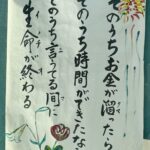 そのうちお金が溜ったら
そのうち時間ができたな
そのうち言ってる間に
生命が終わる